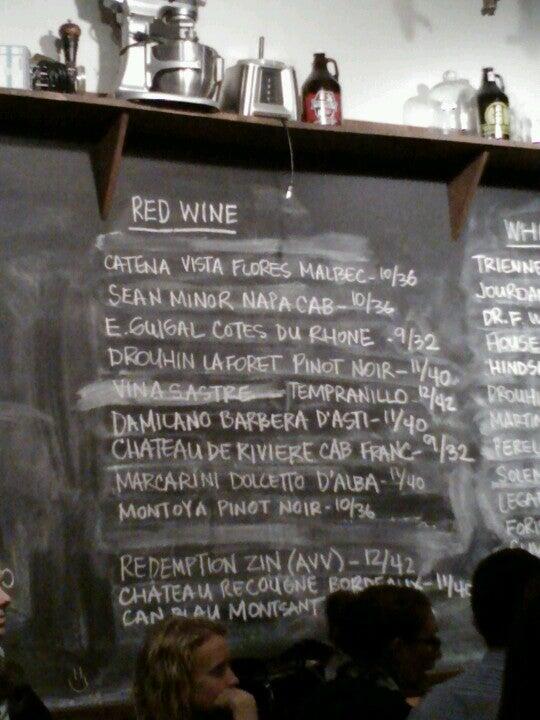 RED WINE
CATENA VISTA FLORES MALBEC - 10/36
SEAN MINOR NAPA CAB - 10/36
E. GUIGAL COTES DU RHONE - 9/32
DROUHIN LAFORET PINOT NOIR - 11/40
VINA SASTRE TEMPRANILLO - 12/42
DAMILANO BARBERA D'ASTI - 11/40
CHATEAU DE RIVIERE CAB FRANC - 9/32
MARCARINI DOLCETTO D'ALBA - 11/40
MONTOYA PINOT NOIR - 10/36
REDEMPTION ZIN (AVV) - 12/42
CHÂTEAU RECOUGNE BORDEAUX - 11/40
CAN BLAU MONTSANT
WHI
TRIENNE
JOURDAN
DR. F. W
HOUSE
HINDS
DROUHI
MARTI
PEREL
SOLEN
LEGA
FORI